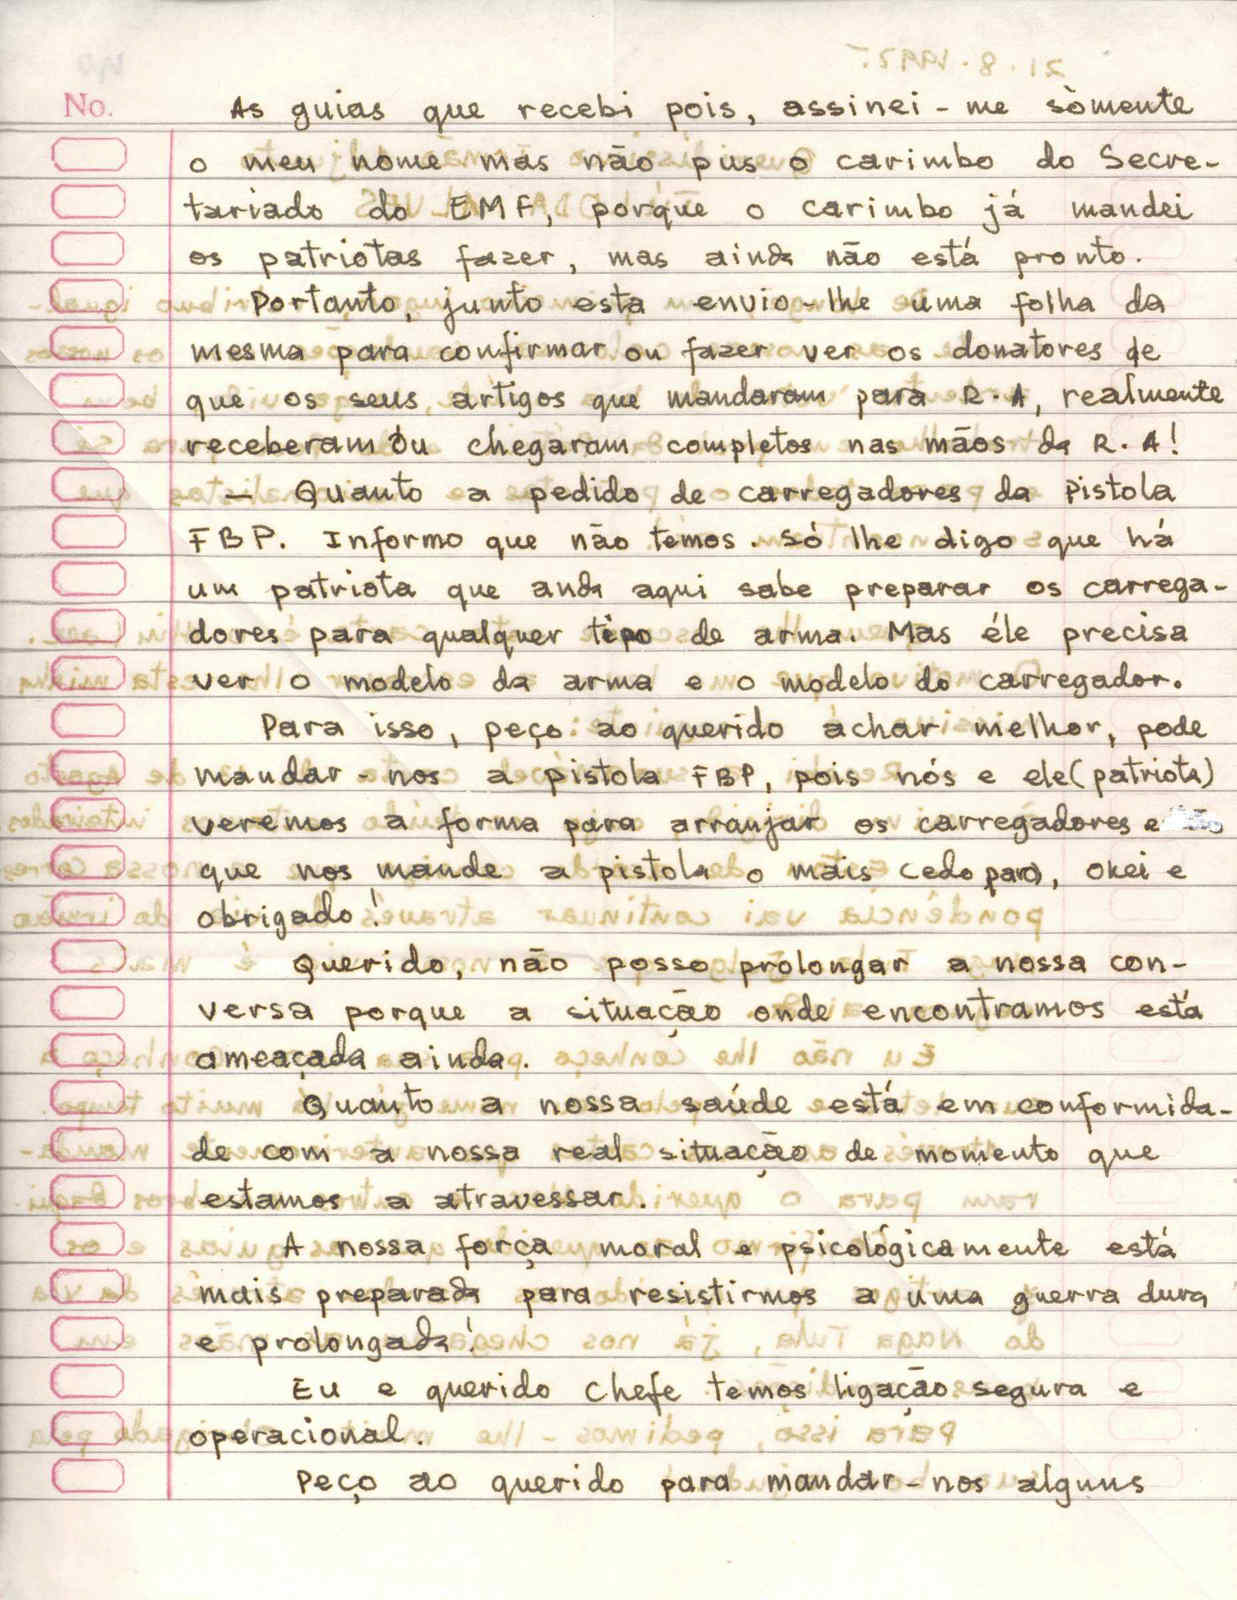 No.
As guias que recebi pois, assinei-me sòmente
o meu nome mas não pus o carimbo do Secre-
tariado do EMF, porque o carimbo já mandei
os patriotas fazer, mas ainda não está pronto.
Portanto, junto esta envio-lhe uma folha da
mesma para confirmar ou fazer ver os donatores de
que os seus artigos que mandaram para R.A, realmente
receberam ou chegaram completos nas mãos da R.A!
- Quanto a pedido de carregadores da Pistola
FBP. Informo que não temos. Só lhe digo que há
um patriota que anda aqui sabe preparar os carrega-
dores para qualquer tipo de arma. Mas éle precisa
ver o modelo da arma e o modelo do carregador.
Para isso, peço ao querido achar melhor, pode
mandar-nos a pistola FBP, pois nós e ele (patriota)
veremos a forma para arranjar os carregadores e
que nos mande a pistola o mais cedo para, okei e
obrigado!
Querido, não posso prolongar a nossa con-
versa porque a situação onde encontramos está
ameaçada ainda.
Quanto a nossa saúde está em conformida-
de com a nossa real situação de momento que
estamos a atravessar.
A nossa força moral e psicológicamente está
mais preparada para resistirmos a uma guerra dura
e prolongada!
Eu e querido Chefe temos ligação segura e
operacional.
Peço ao querido para mandar-nos alguns